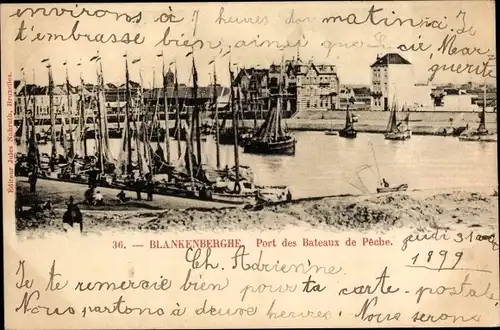 environs à 7 heures du matin. Je
t'embrasse bien, ainsi que
Marguerite
Éditeur Jules Nahrath, Bruxelles
36. — BLANKENBERGHE. Port des Bateaux de Pêche.
jeudi 31
1899
Ch. Adrienne.
Je te remercie bien pour ta carte-postale
Nous partons à deux heures. Nous serons